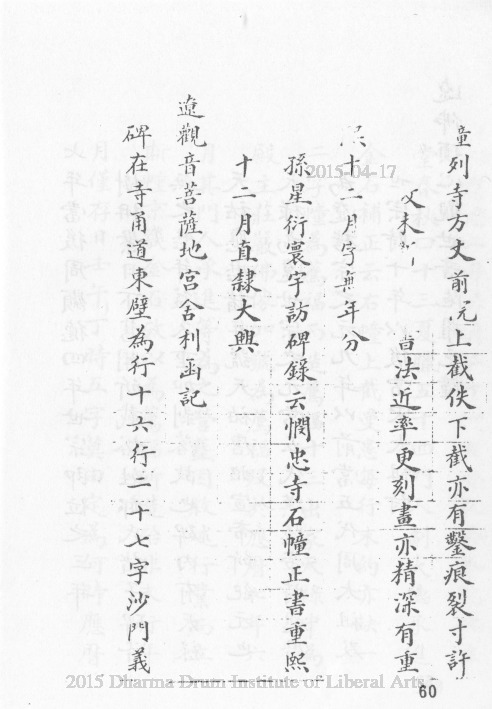 童列寺方丈前元上截佚下截亦有鑿痕裂寸許
文末
法近率更刻畫亦精深有重
十二月字無年分
孫星衍寰宇訪碑錄云憫忠寺石幢正書重熙
十二月直隸大興
遼觀音菩薩地宮舍利函記
碑在寺甬道東壁為行十六行三十七字沙門義
2015-04-17
2015 Dharma Drum Institute of Liberal Arts
60